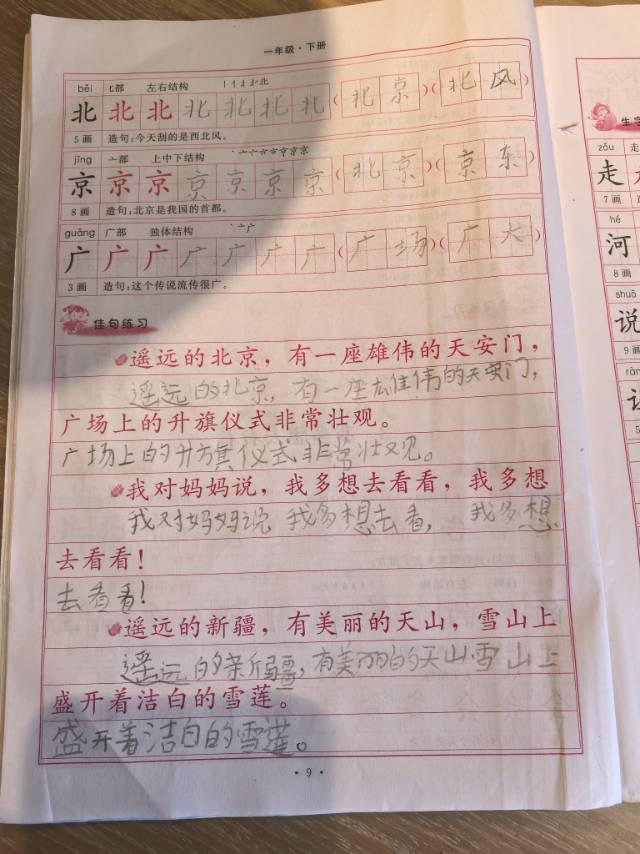 一年级·下册
běi 匕部 左右结构
北 北 北 北 北 北 北 (北京)(北风)
5画 造句:今天刮的是西北风。
jīng 亠部 上中下结构
京 京 京 京 京 京 京 (北京)(京东)
8画 造句:北京是我国的首都。
guǎng 广部 独体结构
广 广 广 广 广 广 广 (广场)(广大)
3画 造句:这个传说流传很广。
佳句练习
遥远的北京,有一座雄伟的天安门,
遥远的北京,有一座雄伟的天安门,
广场上的升旗仪式非常壮观。
广场上的升旗仪式非常壮观。
我对妈妈说,我多想去看看,我多想
我对妈妈说 我多想去看, 我多想
去看看!
去看看!
遥远的新疆,有美丽的天山,雪山上
遥远的新疆,有美丽的天山雪山上
盛开着洁白的雪莲。
盛开着洁白的雪莲。
·9·
生字
zǒu 走
走
7画
hé
河
8画
shuō
说
9画